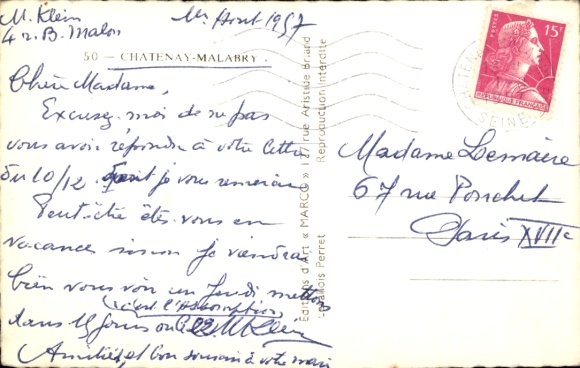 M. Klein
4 r. B. Malon
1er Aout 1957
50 - CHATENAY-MALABRY.
Chère Madame,
Excusez-moi de ne pas
vous avoir répondu à votre lettre
du 10/12 je vous remercie
Peut-être êtes-vous en
vacances sinon je viendrai
bien vous voir un Jeudi mettons
(c'est l'Assomption)
dans 15 jours ou le 22 M Klein
Amitiés, et bon souvenir à votre mari
Editions d'Art « MARCO » 127 rue Aristide Briand
Levallois Perret
Reproduction Interdite
POSTES
15F
REPUBLIQUE FRANÇAISE
SEINE
Madame Lemaire
67 rue Pouchet
Paris XVIIe